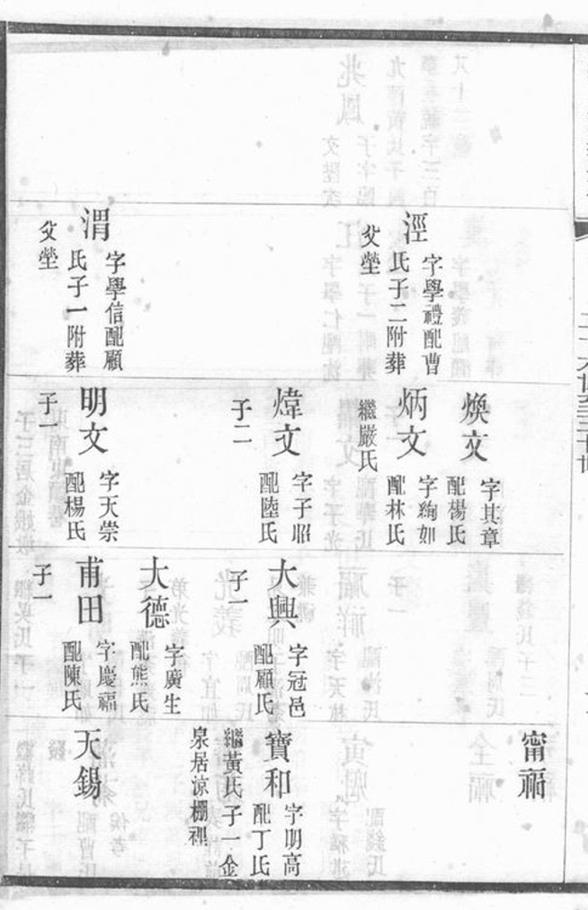 涇
字學禮配曹
氏子二附葬
父塋
渭
字學信配顧
氏子一附葬
父塋
煥文
字其章
配楊氏
炳文
字絢如
配林氏
繼嚴氏
煒文
字子昭
配陸氏
子二
明文
字天崇
配楊氏
子一
大興
字冠邑
配顧氏
子一
大德
字廣生
配熊氏
甫田
字慶福
配陳氏
子一
甯福
寶和
字明高
配丁氏
繼黃氏子一金
泉居涼棚裡
天錫